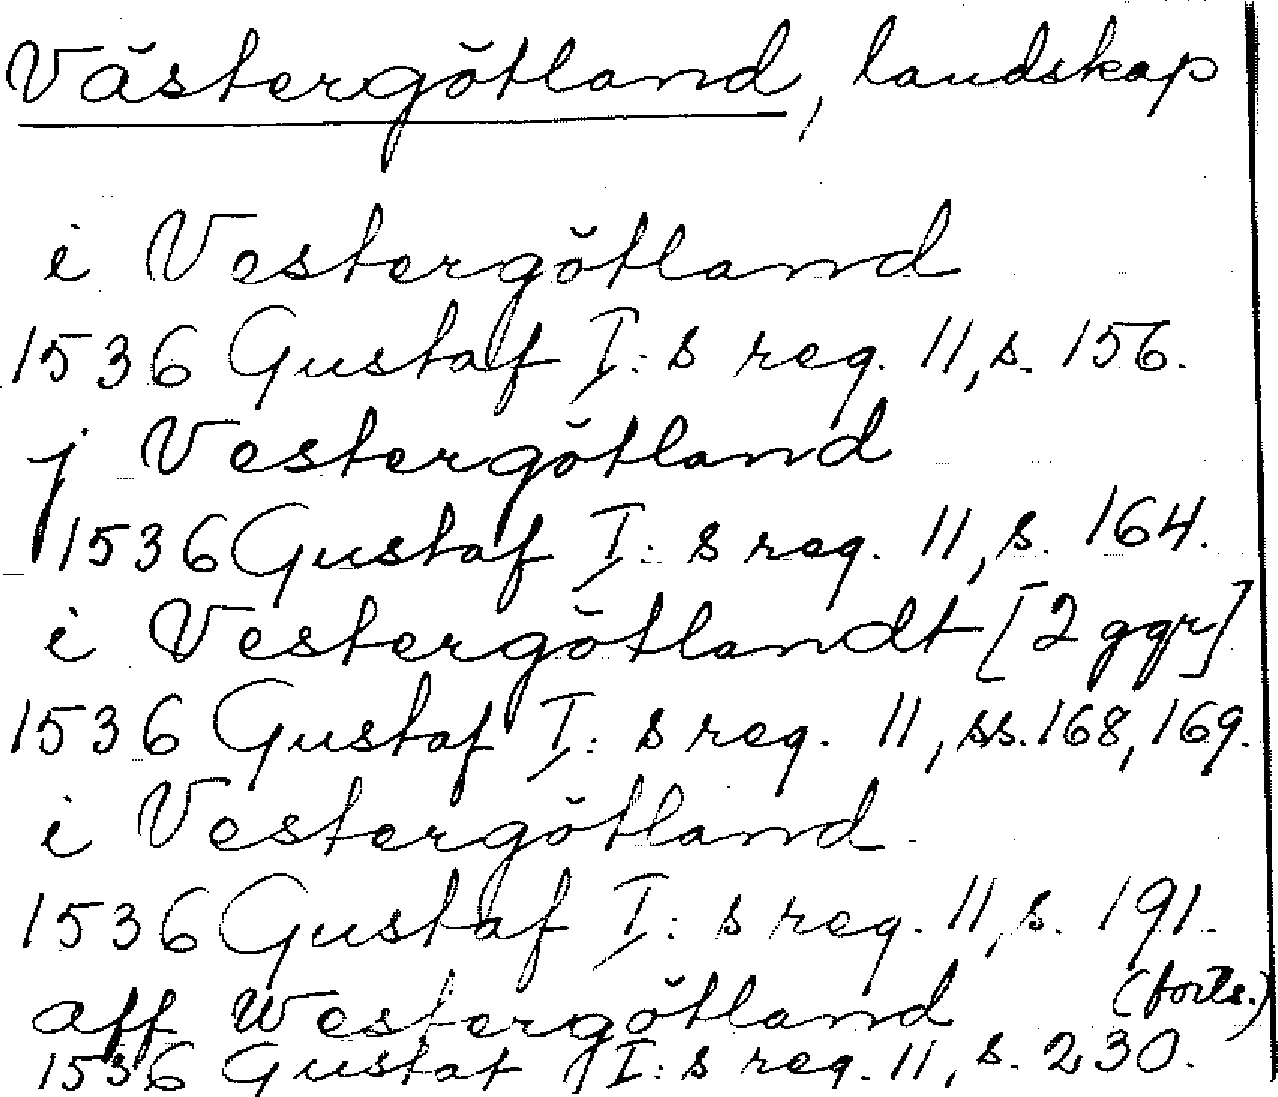 Västergötland, landskap
i Vestergötland
1536 Gustaf I:s reg. 11, s. 156.
j Vestergötland
1536 Gustaf I:s reg. 11, s. 164.
i Vestergötlandt [2 ggr]
1536 Gustaf I:s reg. 11, ss. 168, 169.
i Vestergötland
1536 Gustaf I:s reg. 11, s. 191.
aff Westergötland (forts.)
1536 Gustaf I:s reg. 11, s. 230.